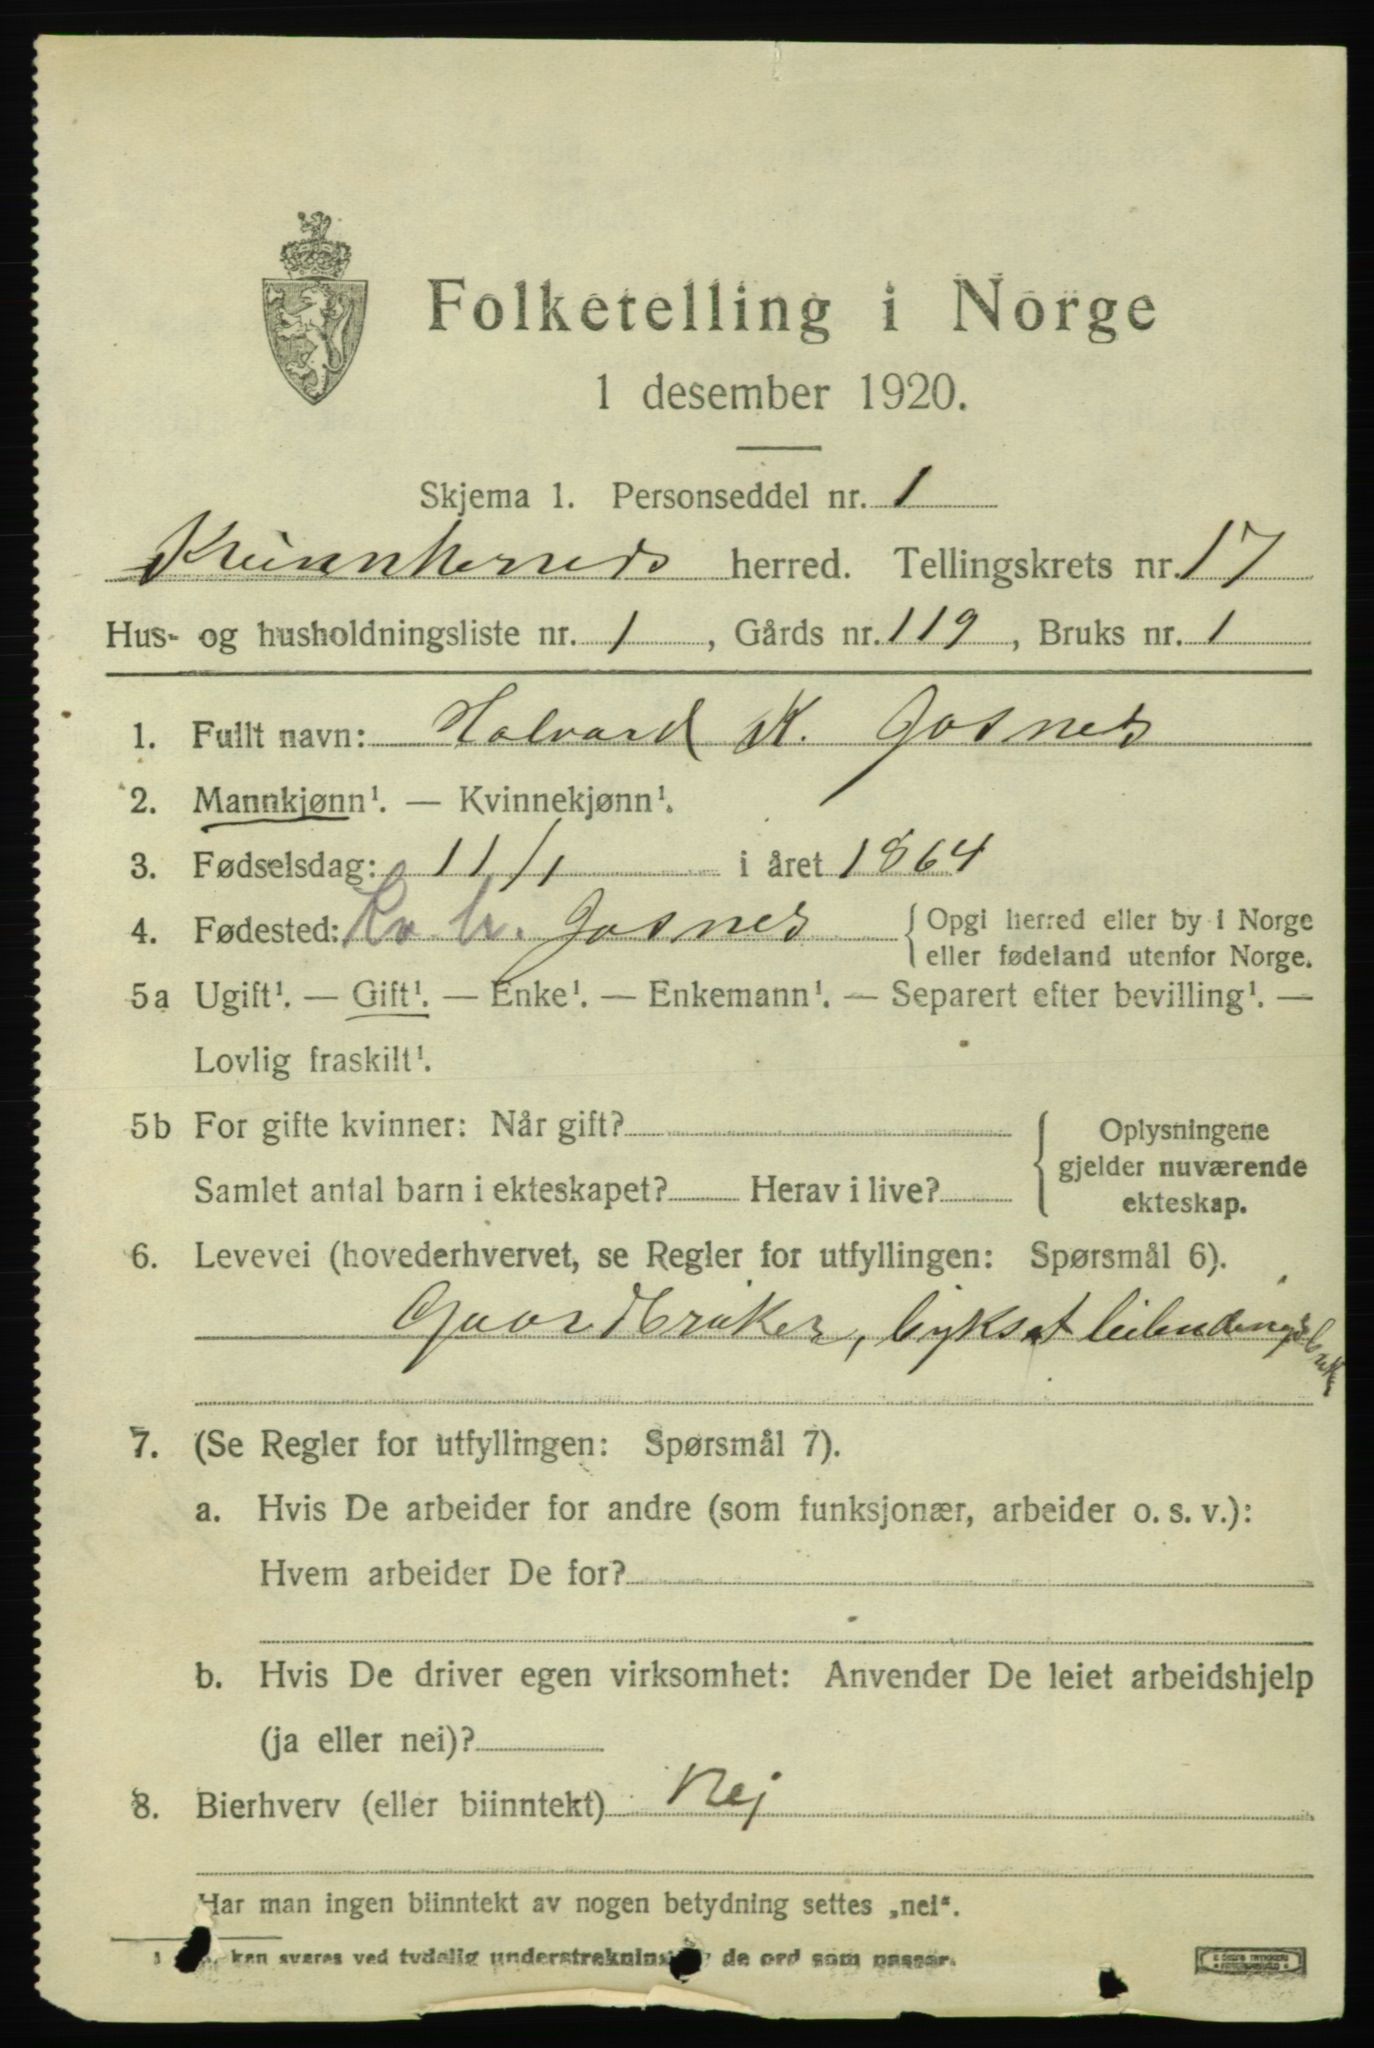 Folketelling i Norge
1 desember 1920.
Skjema 1. Personseddel nr. 1
Kvinnherreds herred. Tellingskrets nr. 17
Hus- og husholdningsliste nr. 1, Gårds nr. 119, Bruks nr. 1
1. Fullt navn: Halvard K. Gosnes
2. Mannkjønn¹. — Kvinnekjønn¹.
3. Fødselsdag: 11/1 i året 1864
4. Fødested: Kv. h. Gosnes { Opgi herred eller by i Norge
eller fødeland utenfor Norge.
5a Ugift¹. — Gift¹. — Enke¹. — Enkemann¹. — Separert efter bevilling¹. —
Lovlig fraskilt¹.
5b For gifte kvinner: Når gift?
Samlet antal barn i ekteskapet? Herav i live?
{ Oplysningene
gjelder nuværende
ekteskap.
6. Levevei (hovederhvervet, se Regler for utfyllingen: Spørsmål 6).
Gaardbruker, bykset leilendingsbruk
7. (Se Regler for utfyllingen: Spørsmål 7).
a. Hvis De arbeider for andre (som funksjonær, arbeider o. s. v.):
Hvem arbeider De for?
b. Hvis De driver egen virksomhet: Anvender De leiet arbeidshjelp
(ja eller nei)?
8. Bierhverv (eller biinntekt) Nej
Har man ingen biinntekt av nogen betydning settes „nei“.
kan svares ved tydelig understrekning de ord som passer.